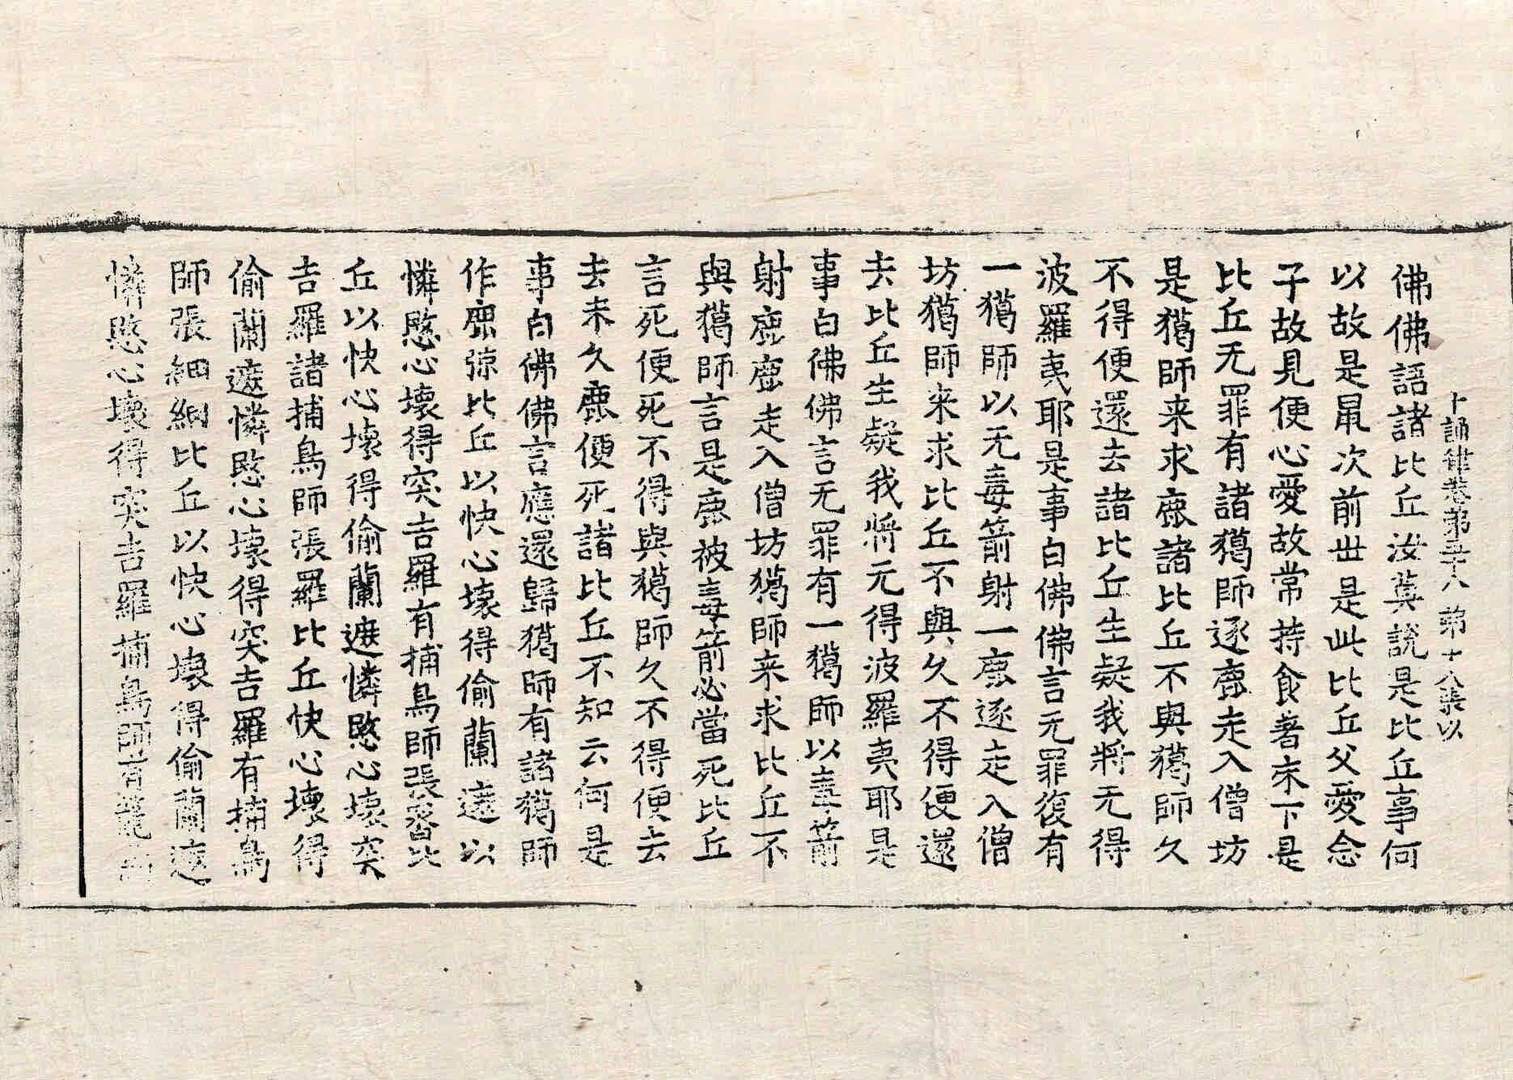 十誦律卷第五十八　第十八張　以
佛佛語諸比丘汝莫說是比丘事何
以故是㝡次前世是此比丘父愛念
子故見便心愛故常持食著床下是
比丘无罪有諸獦師逐鹿走入僧坊
是獦師来求鹿諸比丘不與獦師久
不得便還去諸比丘生疑我將无得
波羅夷耶是事白佛佛言无罪復有
一獦師以无毒箭射一鹿逐走入僧
坊獦師来求比丘不與久不得便還
去比丘生疑我將无得波羅夷耶是
事白佛佛言无罪有一獦師以毒箭
射鹿鹿走入僧坊獦師来求比丘不
與獦師言是鹿被毒箭必當死比丘
言死便死不得與獦師久不得便去
去未久鹿便死諸比丘不知云何是
事白佛佛言應還歸獦師有諸獦師
作鹿弶比丘以快心壞得偷蘭遮以
憐愍心壞得突吉羅有捕鳥師張比
丘以快心壞得偷蘭遮憐愍心壞突
吉羅諸捕鳥師張羅比丘快心壞得
偷蘭遮憐愍心壞得突吉羅有捕鳥
師張細網比丘以快心壞得偷蘭遮
憐愍心壞得突吉羅捕鳥師有